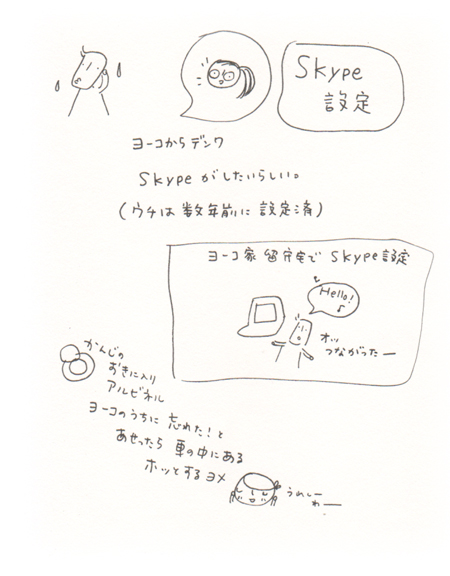 Skype
設定
ヨーコからデンワ
Skypeがしたいらしい。
(ウチは数年前に設定済)
ヨーコ家留守宅でSkype設定
Hello!♪
オッ
つながったー
かんじの
おきに入り
アルビネル
ヨーコのうちに忘れた!と
あせったら車の中にある
ホッとするヨメ
うれしー
わー